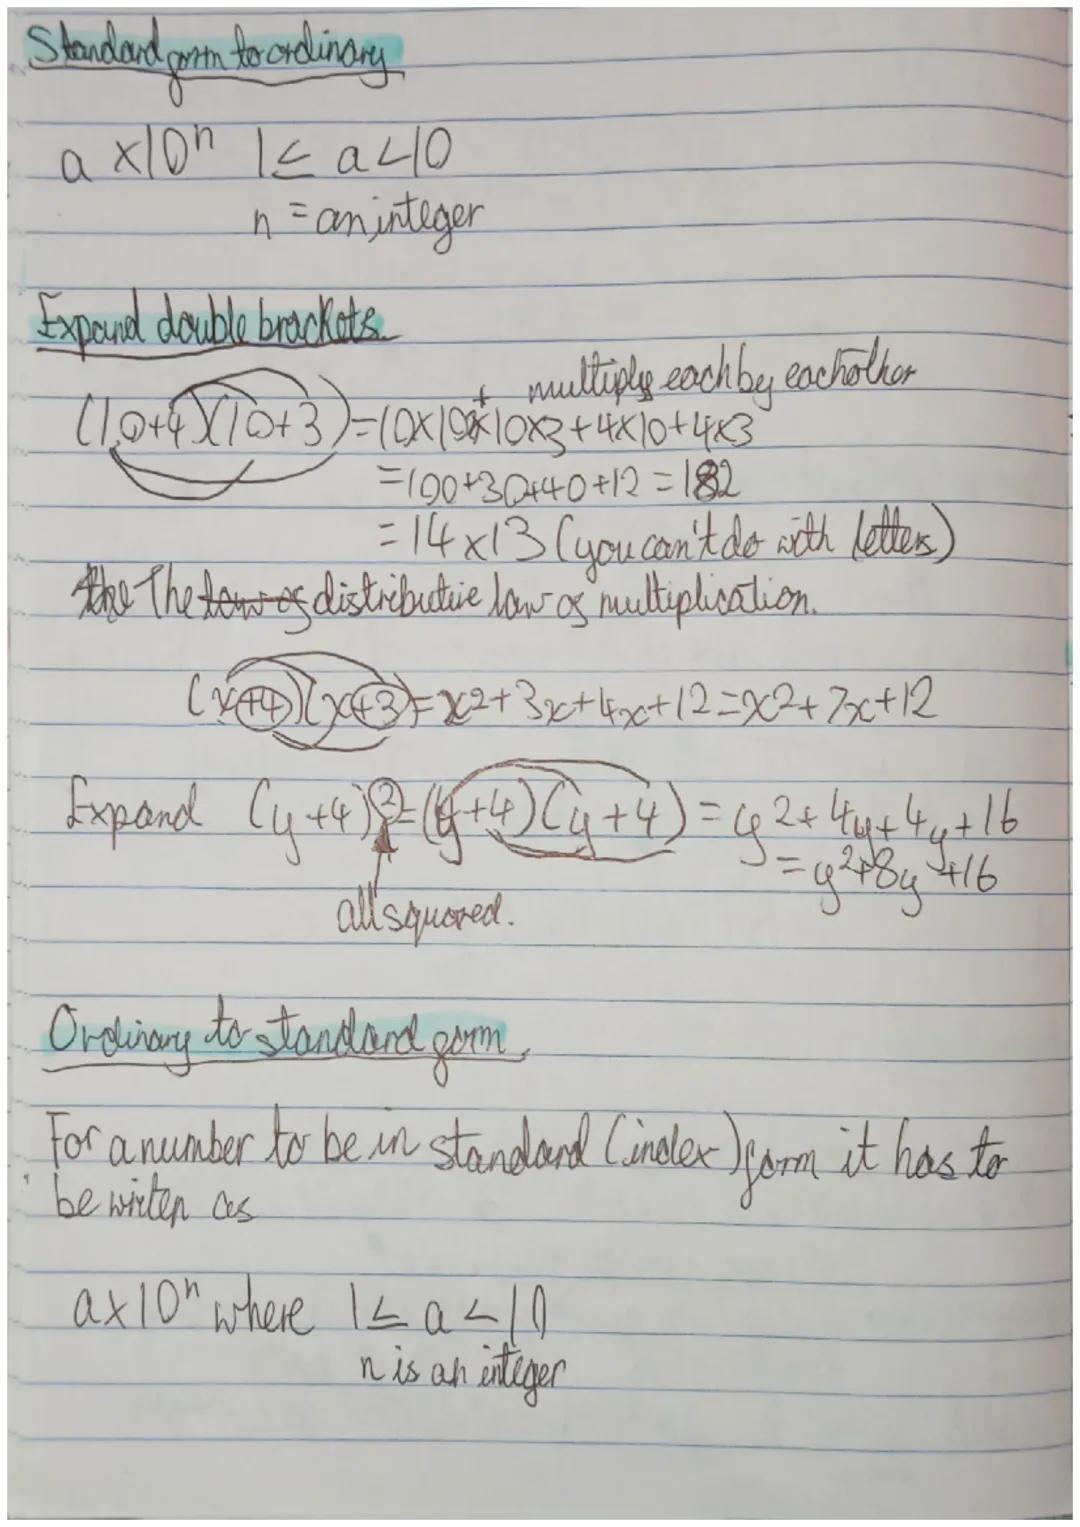 Standard form to ordinary
a ×10ⁿ 1≤ a<10
n = an integer
Expand double brackets
multiply each by each other
(10+4)(10+3)=10×10+10×3+4×10+4×3
=100+30+40+12=182
=14×13 (you can't do with letters)
the The law of distributive law of multiplication.
(x+4)(x+3)=x2+3x+4x+12=x2+7x+12
Expand (y+4)2=(y+4)(y+4)=y2+4y+4y+16
=y²+8y+16
all squared.
Ordinary to standard form.
For a number to be in standard (index) form it has to
be writen as
a×10ⁿ where 1≤ a <10
n is an integer